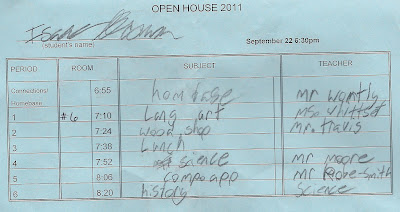 OPEN HOUSE 2011
Isaac
(student's name) September 22 6:30pm
PERIOD ROOM SUBJECT TEACHER
Connections/Homebase 6:55 hom bage mr wamfly
1 #6 7:10 Lang art ms. whittset
2 7:24 wood shop mr. travis
3 7:38 Lunch
4 7:52 science mr moore
5 8:06 compo app mr Robe-Smith
6 8:20 history science